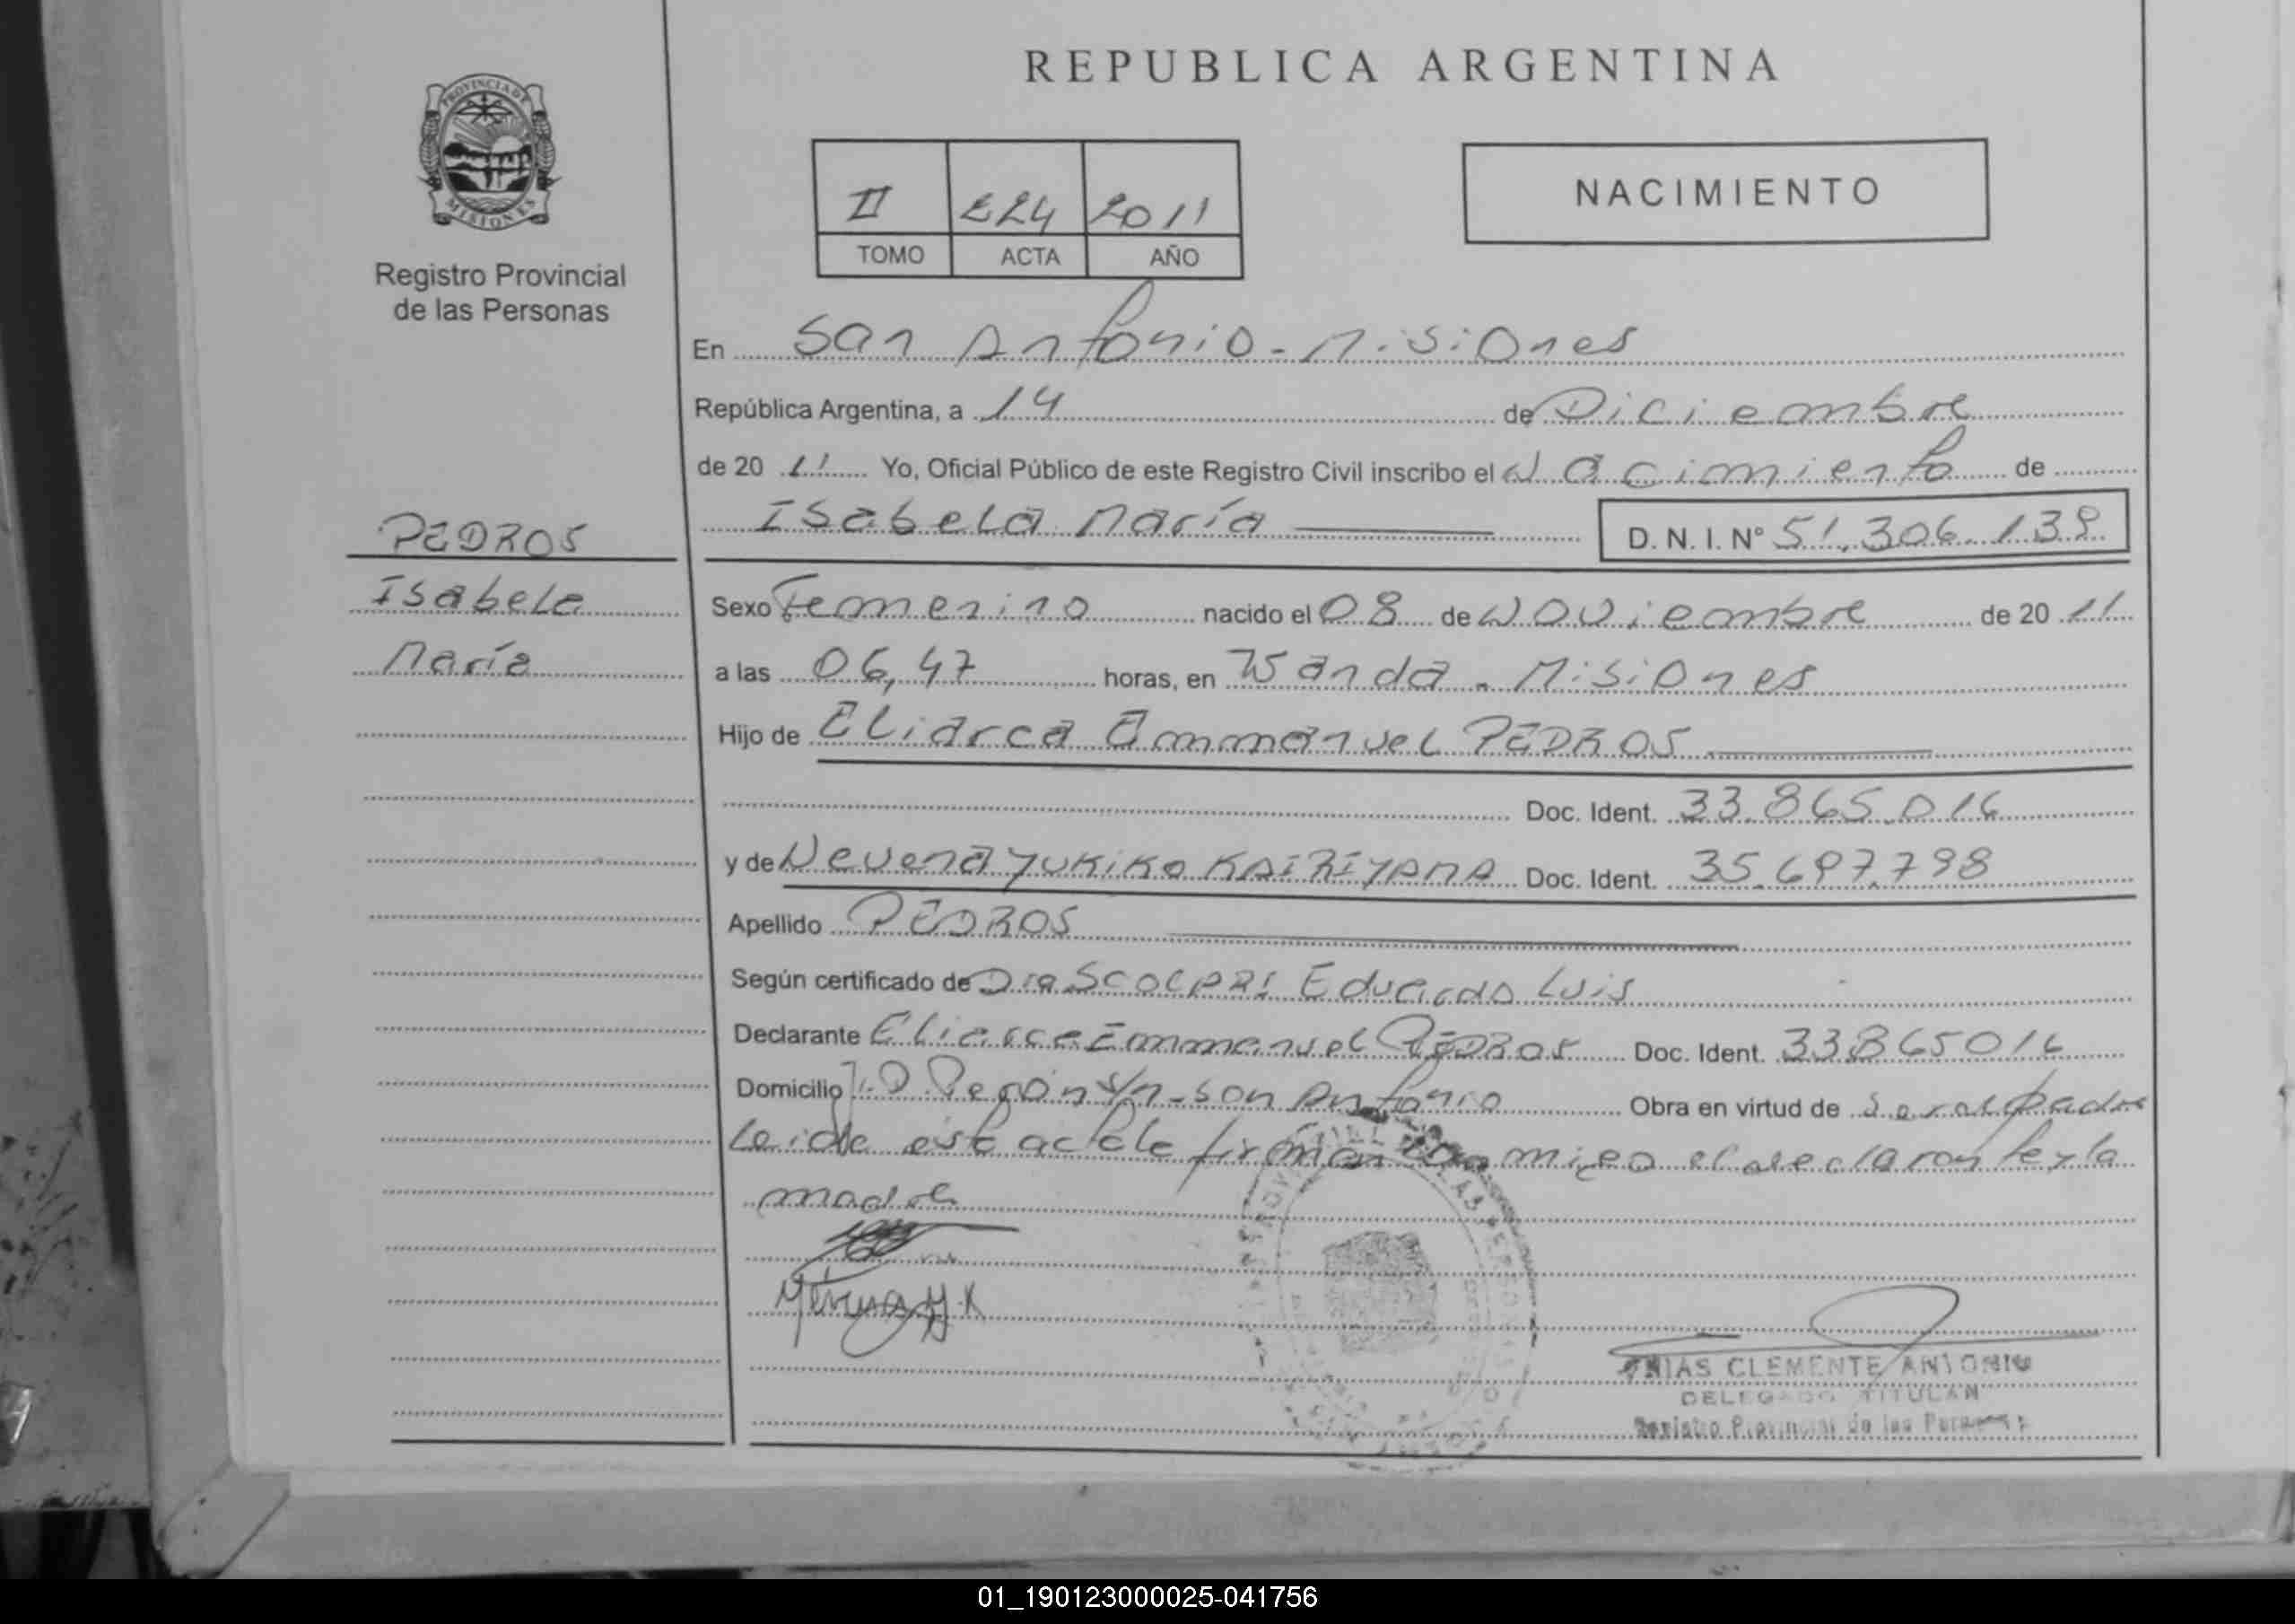 REPUBLICA ARGENTINA
PROVINCIA DE MISIONES
Registro Provincial
de las Personas
II 224 2011
TOMO ACTA AÑO
NACIMIENTO
En San Antonio - Misiones
República Argentina, a 14 de Diciembre
de 20 11 Yo, Oficial Público de este Registro Civil inscribo el Nacimiento de
Isabela María D. N. I. Nº 51.306.139
PEDROS
Isabela
María
Sexo Femenino nacido el 08 de Noviembre de 20 11
a las 06,47 horas, en Wanda - Misiones
Hijo de Eliarca Emmanuel PEDROS
Doc. Ident. 33.865.016
y de Nevena YUKIKO KAIRIYAMA Doc. Ident. 35.697.798
Apellido PEDROS
Según certificado de Eduardo Luis
Declarante Eliarca Emmanuel PEDROS Doc. Ident. 33865016
Domicilio J.D. Perón s/n - San Antonio Obra en virtud de Ser el padre
Leida esta acta le firman conmigo el declarante y la
madre
CLEMENTE ANTONIO
DELEGADO TITULAR
Registro Provincial de las Personas
01_190123000025-041756